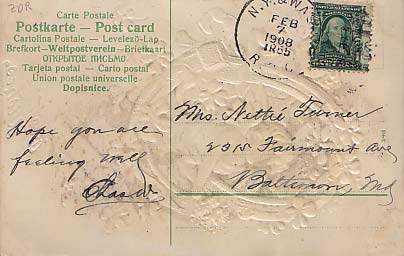 ZDR
Carte Postale
Postkarte — Post card
Cartolina Postale — Levelező-Lap
Brefkort—Weltpostverein—Briefkaart
ОТКРЫТОЕ ПИСЬМО
Tarjeta postal — Carto postal
Union postale universelle
Dopisnice.
N.Y. & WA
FEB
1908
R.
Hope you are
feeling well
Chas W.
Mrs. Nettie Turner
2315 Fairmount Ave
Baltimore, Md